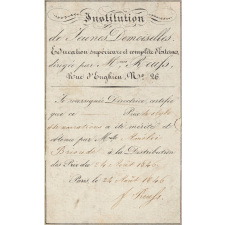 Institution
de Jeunes Demoiselles.
Education supérieure et complète Externat,
dirigée par Mme Roufs,
Rue d'Enghien, No. 26
Je soussignée Directrice, certifie
que ce Prix de style
a été mérité et
obtenu par Melle
à la Distribution
des Prix du 24 Août 1846
Paris, le 24 Août 1846